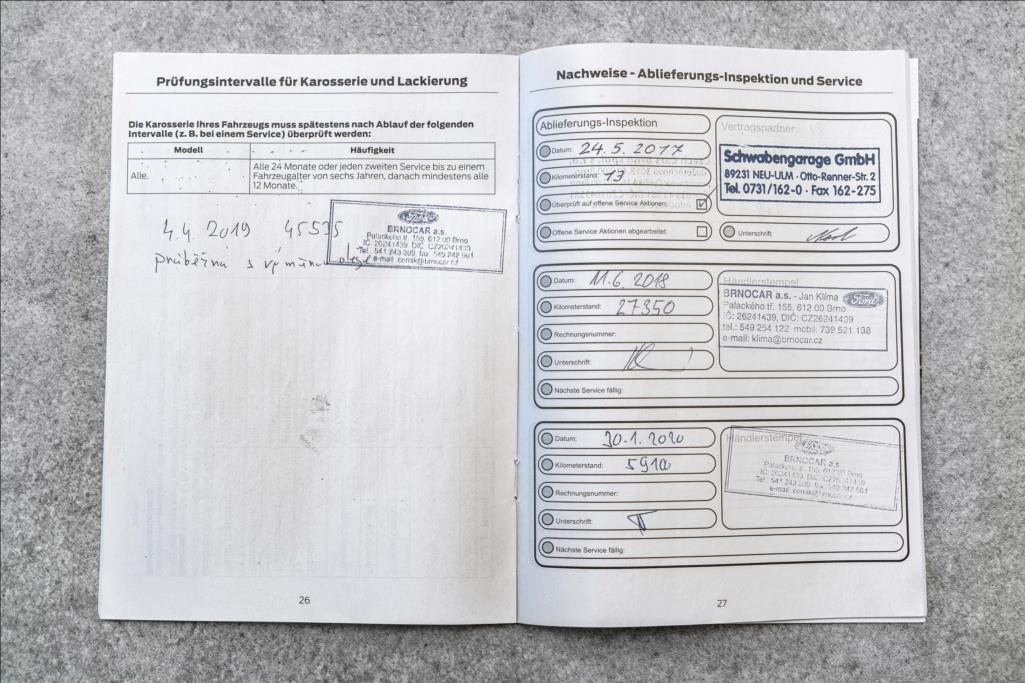 Prüfungsintervalle für Karosserie und Lackierung
Die Karosserie Ihres Fahrzeugs muss spätestens nach Ablauf der folgenden
Intervalle (z. B. bei einem Service) überprüft werden:
Modell Häufigkeit
Alle. Alle 24 Monate oder jeden zweiten Service bis zu einem
Fahrzeugalter von sechs Jahren, danach mindestens alle
12 Monate.
4.4. 2019 45535
Ford
BRNOCAR a.s.
Palackého tř. 155, 612 00 Brno
IČ: 26241439, DIČ: CZ26241439
Tel.: 541 243 309, fax: 549 242 561
e-mail: cernik@brnocar.cz
průběžná s výměnou oleje
26
Nachweise - Ablieferungs-Inspektion und Service
Ablieferungs-Inspektion
Datum: 24. 5. 2017
Kilometerstand: 13
Überprüft auf offene Service Aktionen:
Offene Service Aktionen abgearbeitet:
Vertragspartner
Schwabengarage GmbH
89231 NEU-ULM · Otto-Renner-Str. 2
Tel. 0731/162-0 · Fax 162-275
Unterschrift:
Datum: 11.6. 2018
Kilometerstand: 27350
Rechnungsnummer:
Unterschrift:
Nächste Service fällig:
Händlerstempel
BRNOCAR a.s. - Jan Klíma
Ford
Palackého tř. 155, 612 00 Brno
IČ: 26241439, DIČ: CZ26241439
tel.: 549 254 122 mobil: 739 521 138
e-mail: klima@brnocar.cz
Datum: 30.1.2020
Kilometerstand:
Rechnungsnummer:
Unterschrift:
Nächste Service fällig:
Händlerstempel
Ford
BRNOCAR a.s.
Palackého tř. 155, 612 00 Brno
IČ: 26241439, DIČ: CZ26241439
Tel.: 541 243 309, fax: 549 242 561
e-mail: cernik@brnocar.cz
27